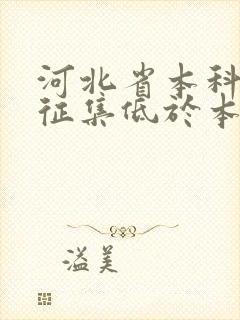 河北省本科
征集低於本
溢美